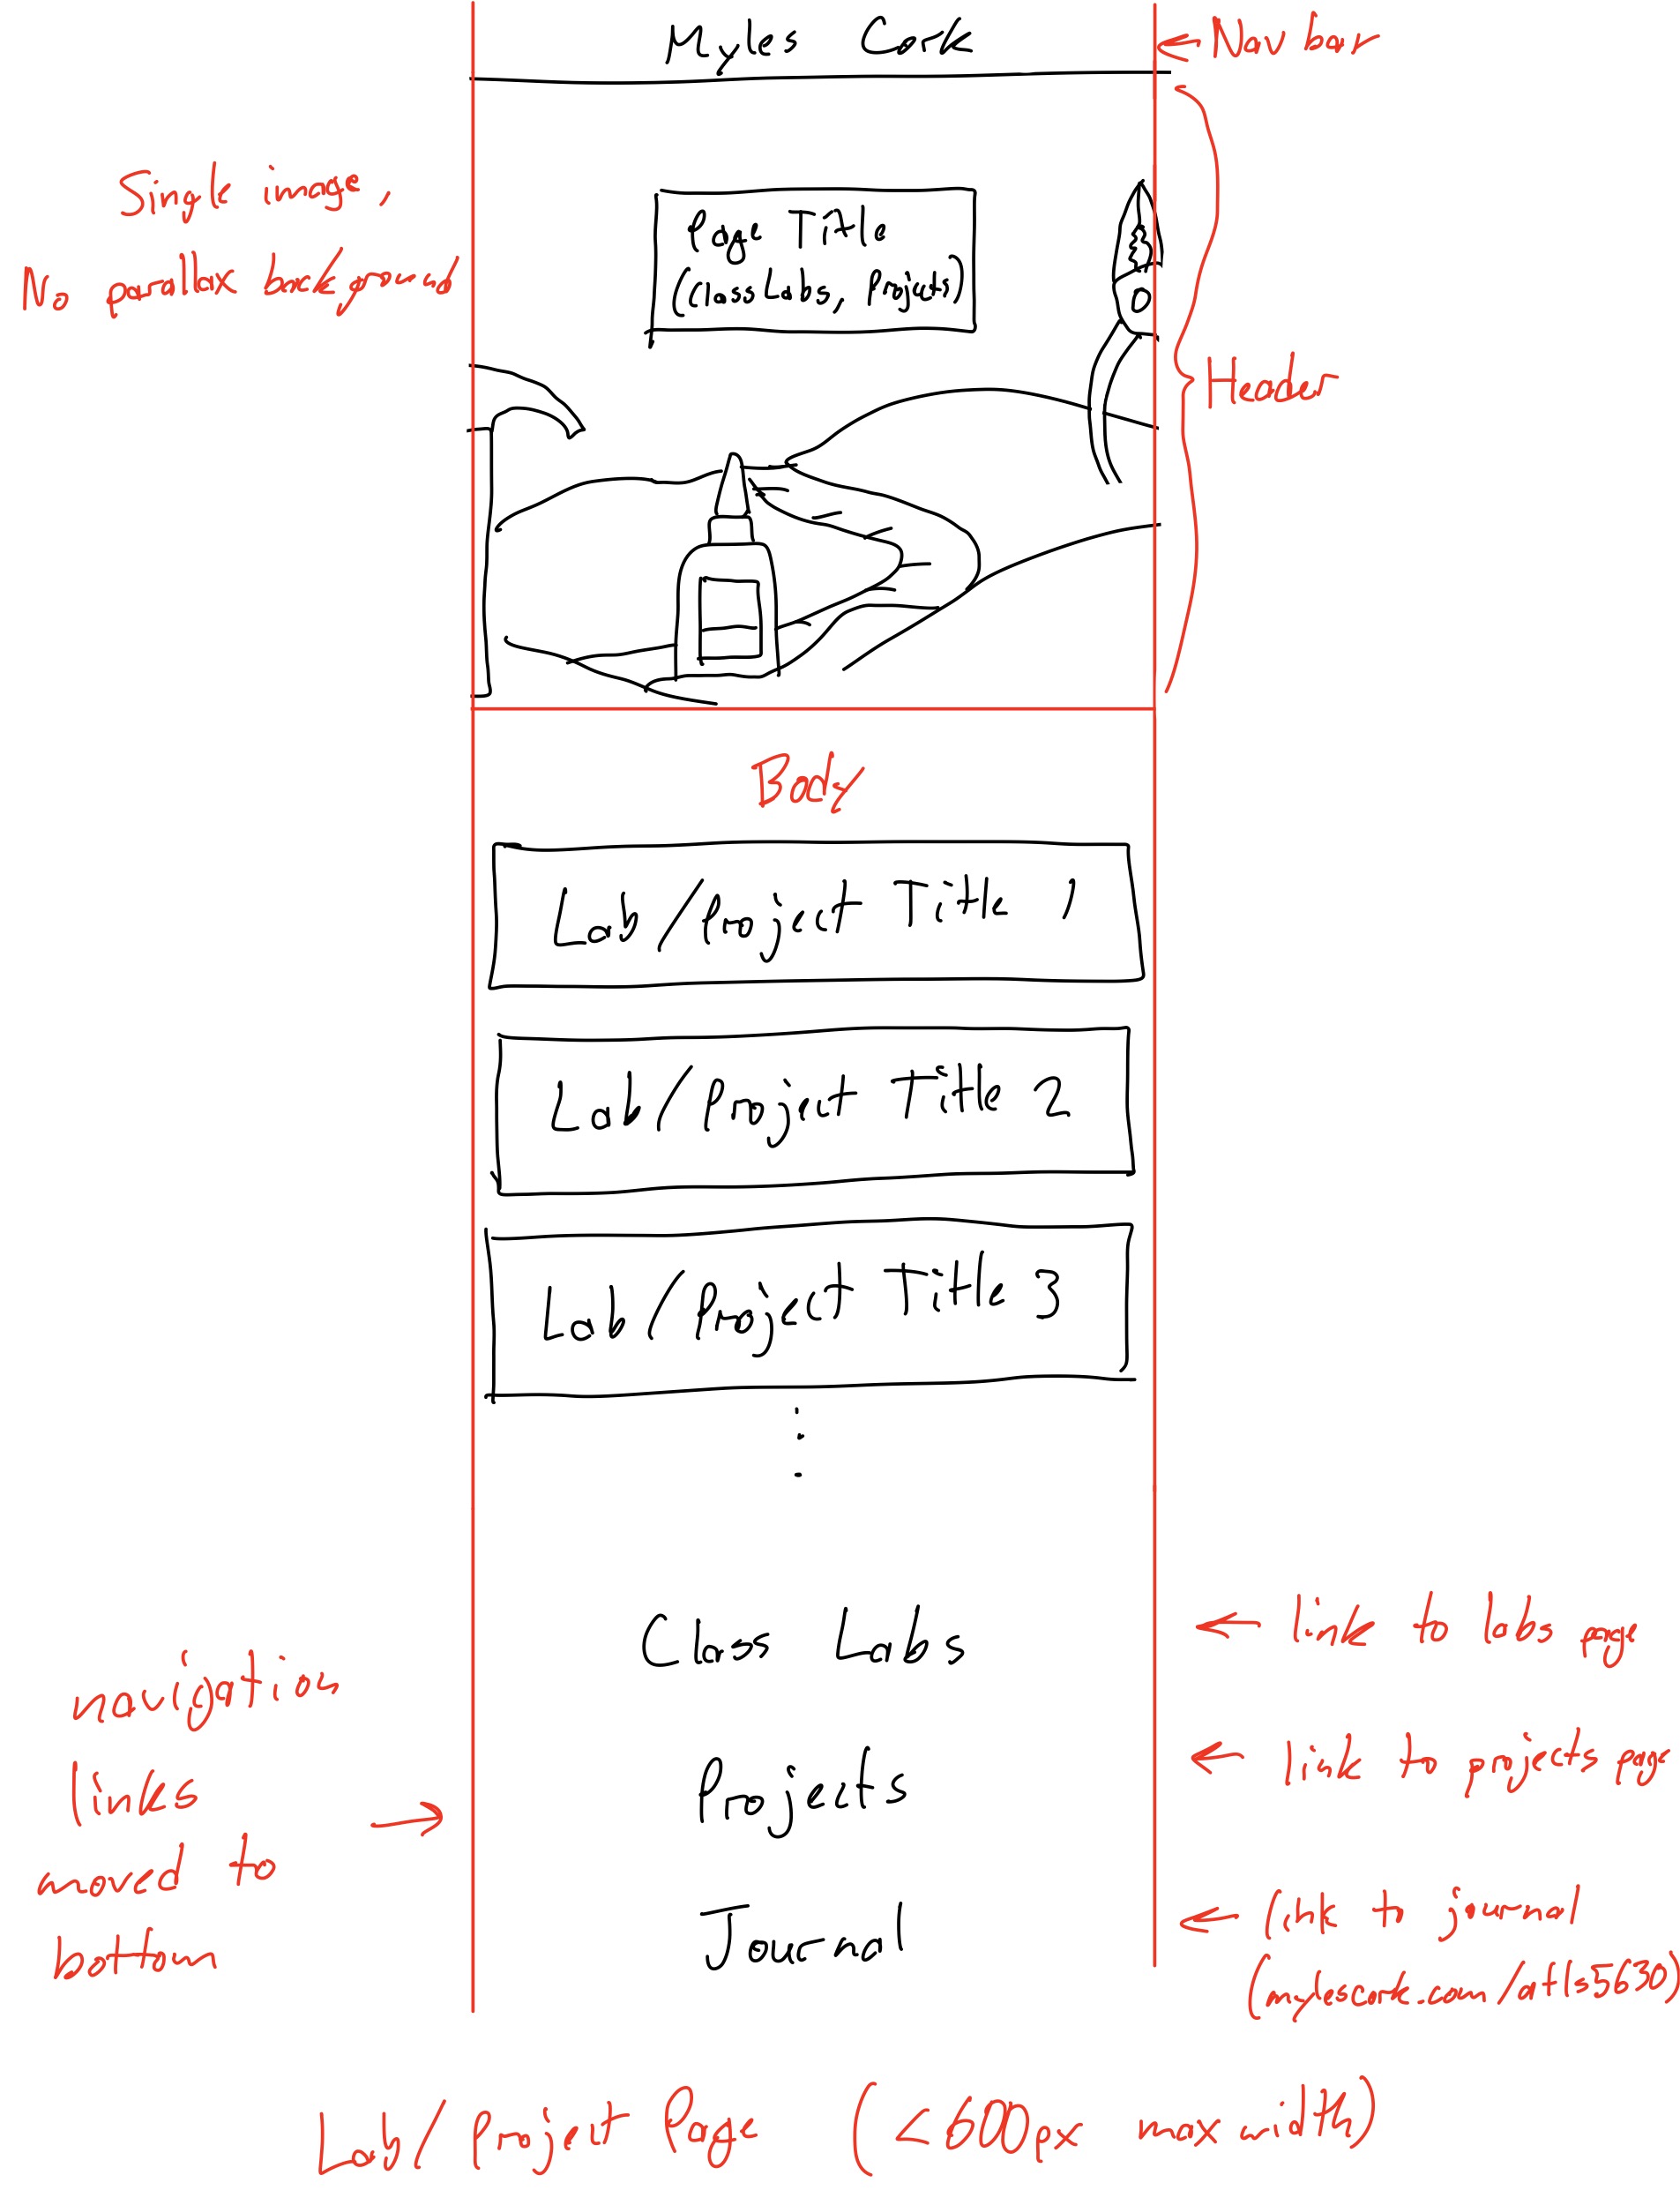 Myles Cork
← Nav bar
Single image,
No parallax background
Page Title
(Class Labs, Projects)
Header
Body
Lab/Project Title 1
Lab/Project Title 2
Lab/Project Title 3
Class Labs
← link to labs page
navigation
links
moved to
bottom
→
Projects
← link to projects page
Journal
← link to journal
(mylescork.com/atls5630)
Lab/Project Page (<600px max width)